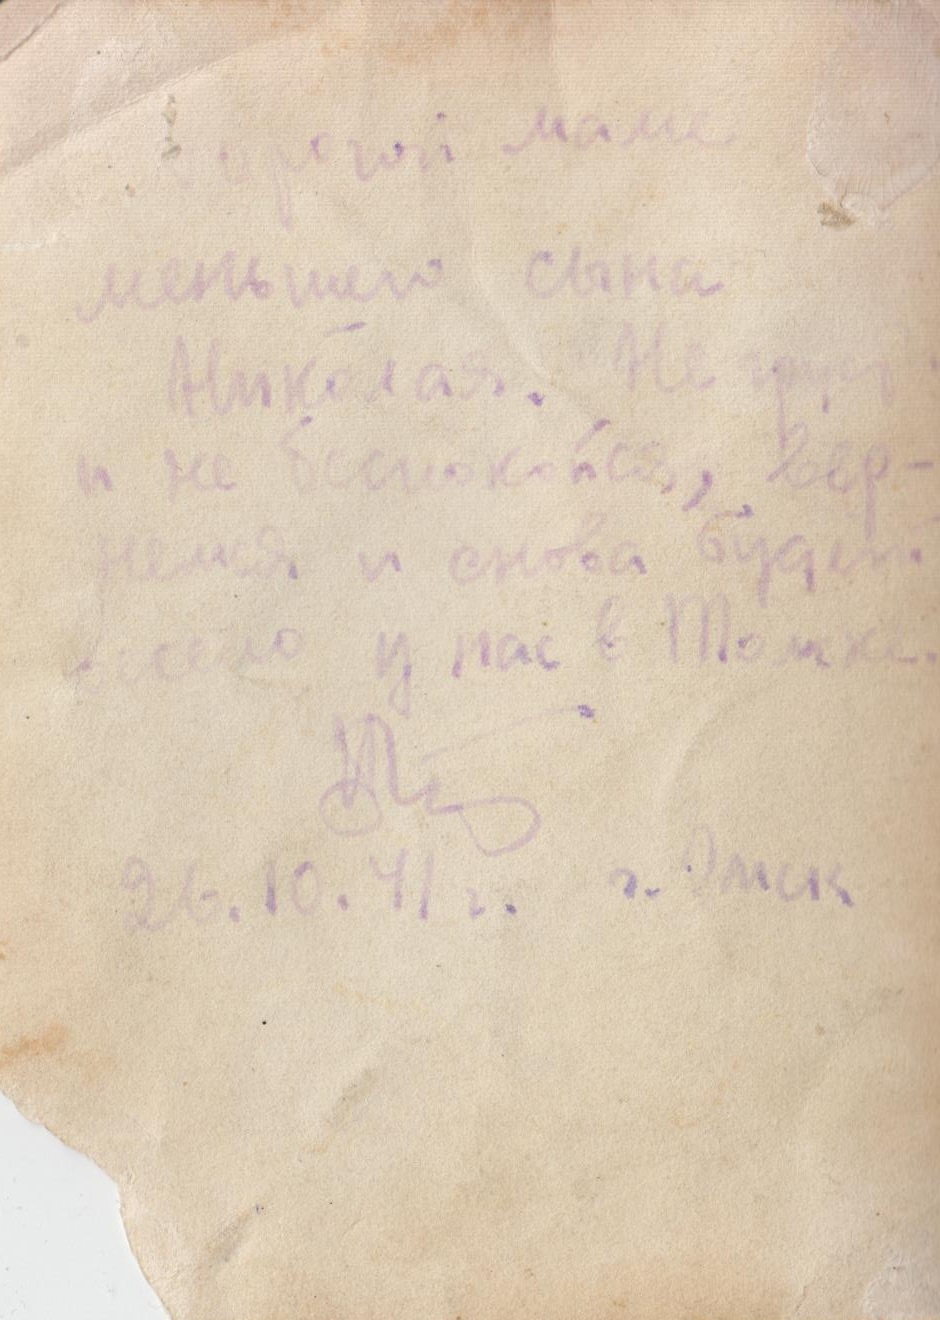 Дорогой маме
меньшего сына
Николая. Не грусти
и не беспокойся, вер-
немся и снова будет
весело у нас в Томске.
26.10.41 г. г. Омск